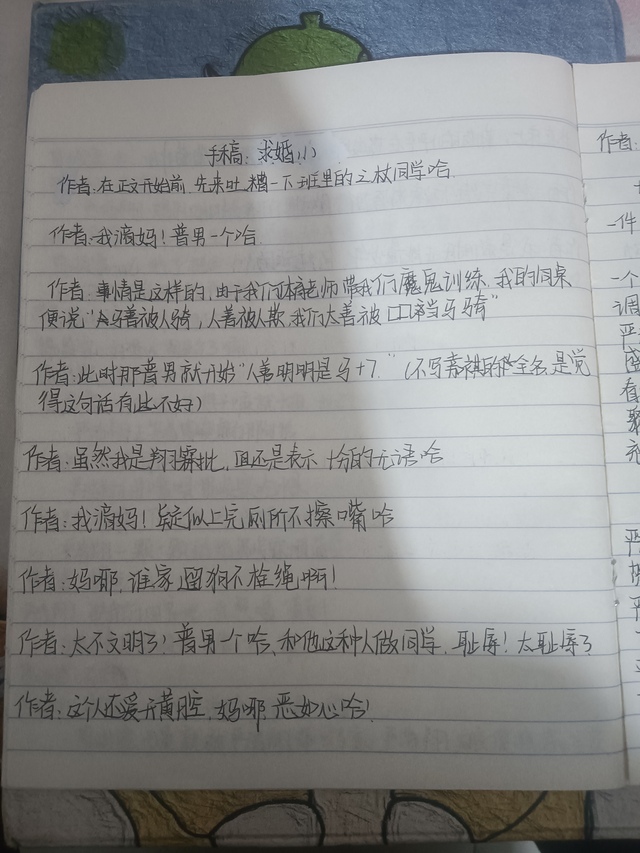 手稿：求婚(1)
作者：在正文开始前，先来吐糟一下班里的之杖同学哈
作者：我滴妈！普男一个哈
作者：事情是这样的，由于我们体育老师带我们魔鬼训练，我的同桌
便说“马善被人骑，人善被人欺，我们太善被 当马骑”
作者：此时那普男就开始“人善明明是马+7.”（不写嘉祺的全名是觉
得这句话有些不好）
作者：虽然我是翔霖批，但还是表示十分的无语哈
作者：我滴妈！疑似上完厕所不擦嘴哈
作者：妈哪，谁家遛狗不栓绳啊！
作者：太不文明了！普男一个哈，和他这种人做同学，耻辱！太耻辱了
作者：这个人还爱开黄腔，妈哪，恶如心哈！
作者：
一件
一个
调
严
有
聚
充
严